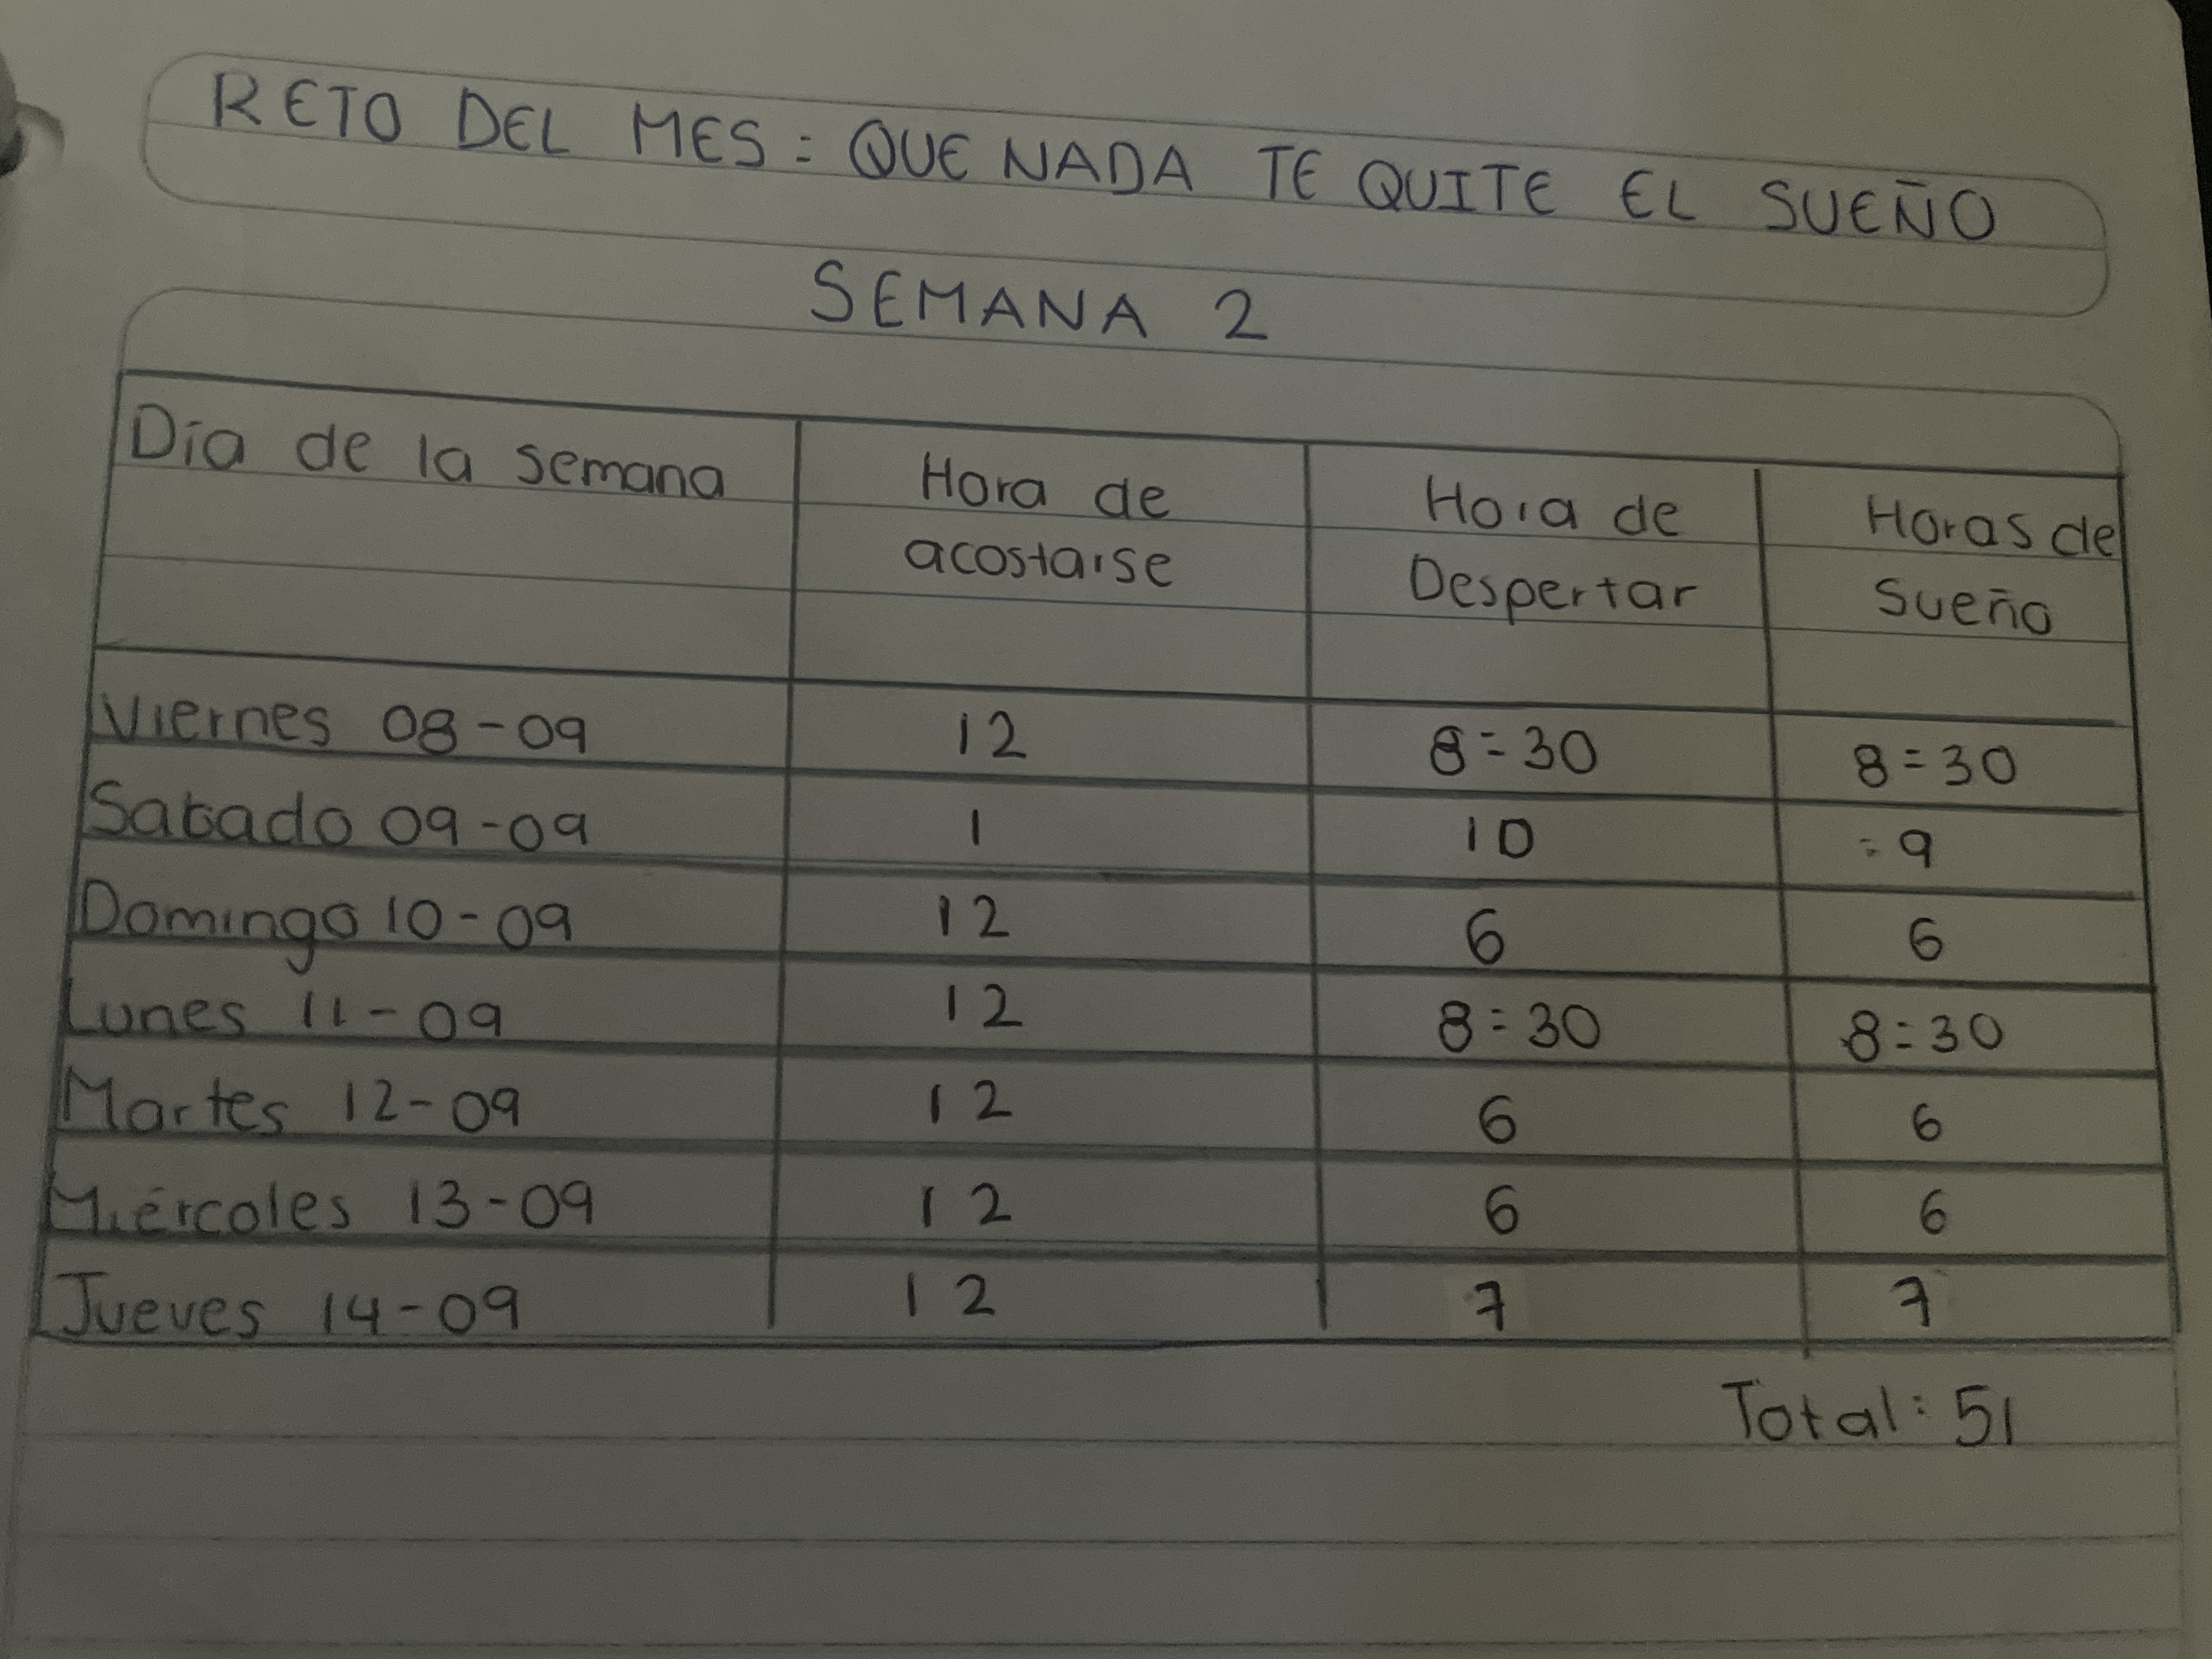 RETO DEL MES: QUE NADA TE QUITE EL SUEÑO
SEMANA 2
Día de la semana Hora de acostarse Hora de Despertar Horas de Sueño
Viernes 08-09 12 8:30 8:30
Sabado 09-09 1 10 :9
Domingo 10-09 12 6 6
Lunes 11-09 12 8:30 8:30
Martes 12-09 12 6 6
Miércoles 13-09 12 6 6
Jueves 14-09 12 7 7
Total: 51